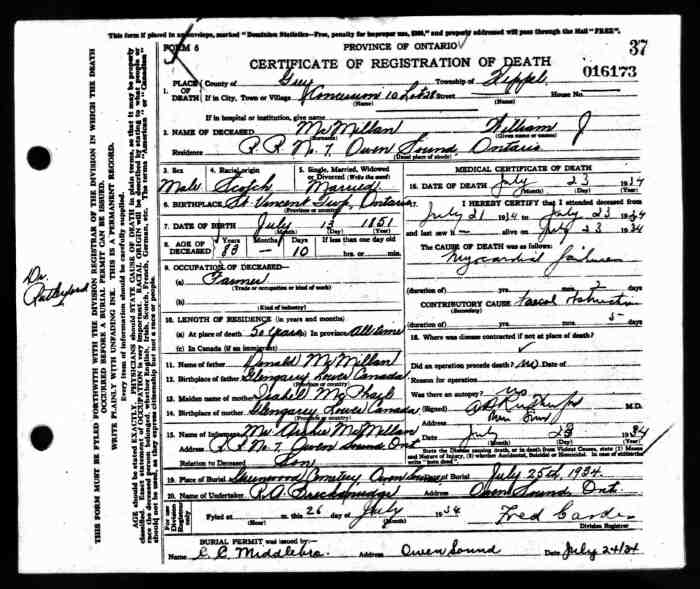 This form if placed in an envelope, marked "Dominion Statistics—Free, penalty for improper use, $300," and properly addressed will pass through the Mail "FREE".
FORM 5 PROVINCE OF ONTARIO 37
CERTIFICATE OF REGISTRATION OF DEATH 016173
1. PLACE OF DEATH County of Grey Township of Keppel
If in City, Town or Village Concession 10 Lot 28 Street House No.
(Name) (Name)
If in hospital or institution, give name
2. NAME OF DECEASED McMillan William J
(Surname) (Given name or names)
Residence R.R. No. 7, Owen Sound Ontario
(Usual place of abode)
3. Sex 4. Racial origin 5. Single, Married, Widowed or Divorced (Write the word)
Male Scotch Married
6. BIRTHPLACE St. Vincent Twp, Ontario
(Province or country)
7. DATE OF BIRTH July 13 1851
(Month) (Day) (Year)
8. AGE OF DECEASED Years Months Days If less than one day old
83 — 10 hrs. or min.
9. OCCUPATION OF DECEASED
(a) Farmer
(Trade or occupation or kind of work)
(b)
(Kind of industry)
10. LENGTH OF RESIDENCE (in years and months)
(a) At place of death 50 years (b) In province All time
(c) In Canada (if an immigrant)
11. Name of father Donald McMillan
12. Birthplace of father Glengarry Lower Canada
(Province or country)
13. Maiden name of mother Isabell McPhail
14. Birthplace of mother Glengarry Lower Canada
(Province or country)
15. Name of Informant Mr. Archie McMillan
Address R.R. No 7. Owen Sound Ont
Relation to Deceased Son
MEDICAL CERTIFICATE OF DEATH
16. DATE OF DEATH July 23 1934
(Month) (Day) (Year)
17. I HEREBY CERTIFY that I attended deceased from
July 21 1934 to July 23 1934
and last saw h— alive on July 23 1934
The CAUSE OF DEATH was as follows:
Myocardial failure
(duration of) yrs. mos. 2 days
CONTRIBUTORY CAUSE Faecal Obstruction
(Secondary)
(duration of) yrs. mos. 5 days
18. Where was disease contracted if not at place of death?
Did an operation precede death? No Date of
Reason for operation
Was there an autopsy? No
(Signed) Rutherford M.D.
Address Owen Sound
Date July 23 1934
State the Disease causing death, or in death from Violent Causes, state (1) Means and Nature of Injury, (2) whether Accidental, Suicidal or Homicidal. In case of stillbirths write "born dead".
19. Place of Burial Greenwood Cemetery Owen Sound Date of Burial July 25th, 1934.
20. Name of Undertaker R.A. Breckenridge Address Owen Sound, Ont.
For use of Division Registrar Filed at m. this 26 day of July 1934 Fred Carde
(Hour) (Month) Division Registrar
BURIAL PERMIT was issued by:—
Name C.C. Middlebro. Address Owen Sound Date July 24/34
Dr. Rutherford
THIS FORM MUST BE FILED FORTHWITH WITH THE DIVISION REGISTRAR OF THE DIVISION IN WHICH THE DEATH OCCURRED BEFORE A BURIAL PERMIT CAN BE ISSUED.
WRITE PLAINLY WITH UNFADING INK. THIS IS A PERMANENT RECORD.
Every item of information should be carefully supplied.
AGE should be stated EXACTLY. PHYSICIANS should STATE CAUSE OF DEATH in plain terms, so that it may be properly classified. Exact statement of OCCUPATION is very important. RACIAL ORIGIN will be described by stating to what people or race the deceased person belonged, whether English, Irish, Scotch, French, German, etc. The terms "American" or "Canadian" should not be used, as they express citizenship but not a race or people.